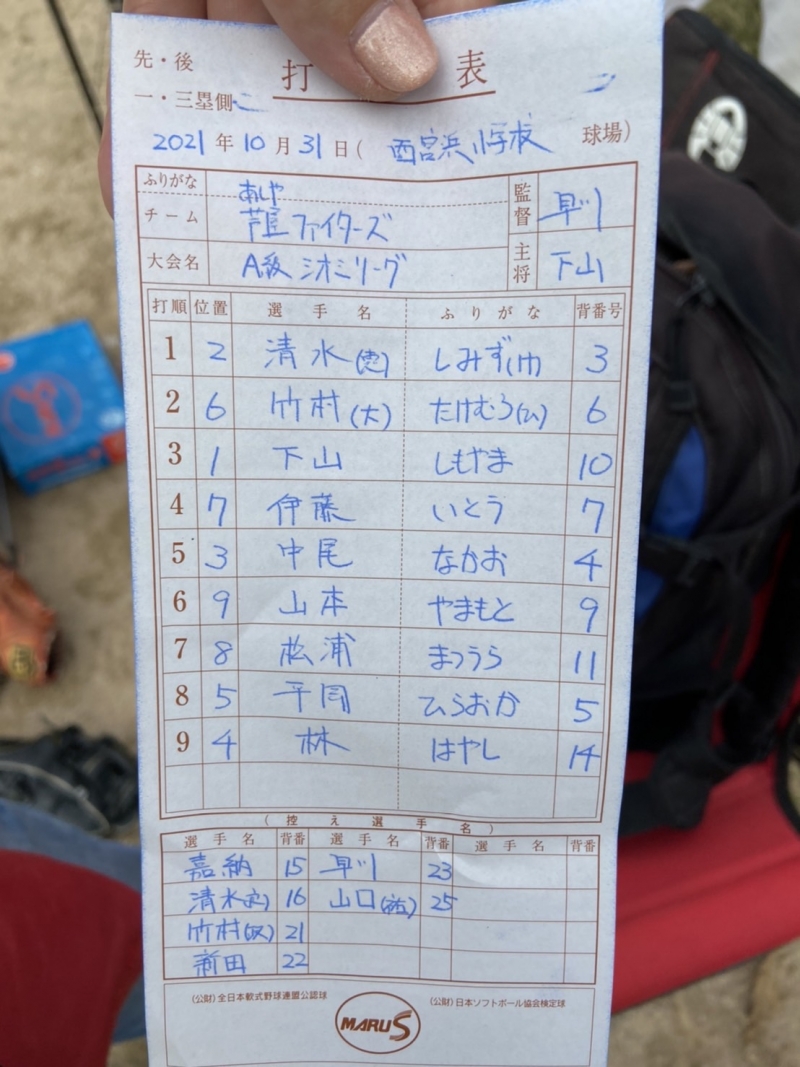 先・後
打 表
一・三塁側
2021年10月31日(西宮浜小学校 球場)
ふりがな あしや
チーム 芦屋ファイターズ 監督 早川
大会名 A級 シオミリーグ 主将 下山
打順 位置 選手名 ふりがな 背番号
1 2 清水 しみず 3
2 6 竹村(大) たけむら 6
3 1 下山 しもやま 10
4 7 伊藤 いとう 7
5 3 中尾 なかお 4
6 9 山本 やまもと 9
7 8 松浦 まつうら 11
8 5 平岡 ひらおか 5
9 4 林 はやし 14
(控え選手名)
選手名 背番 選手名 背番 選手名 背番
嘉納 15 早川 23
清水 16 山口 25
竹村 21
新田 22
(公財)全日本軟式野球連盟公認球 (公財)日本ソフトボール協会検定球
MARU S